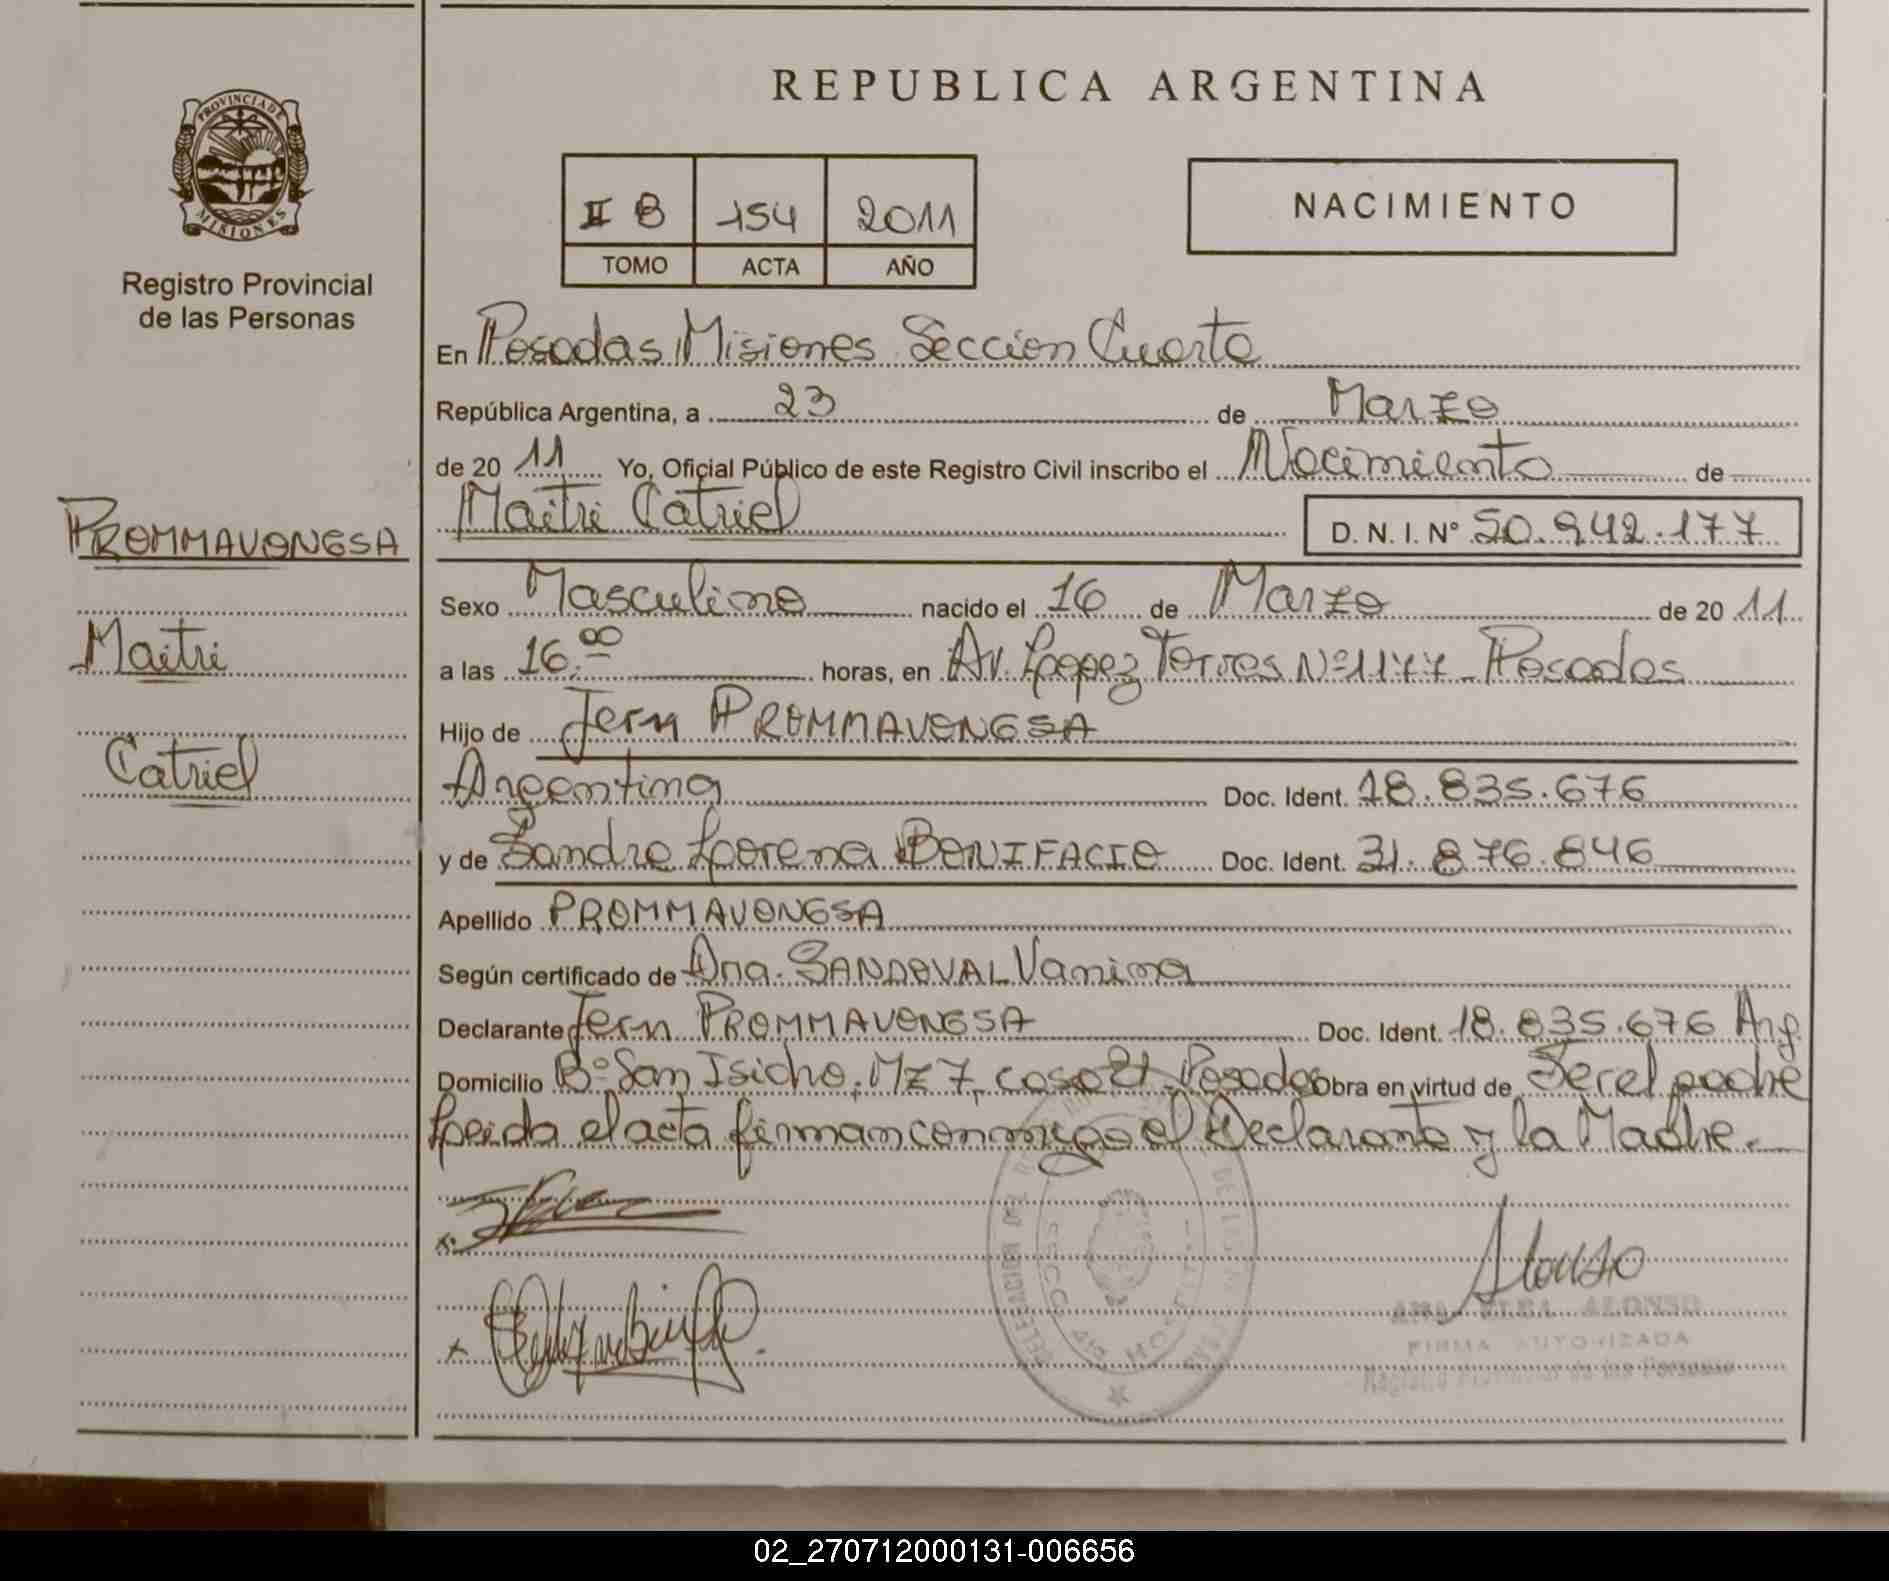 REPUBLICA ARGENTINA
PROVINCIA DE
MISIONES
Registro Provincial
de las Personas
II B 154 2011
TOMO ACTA AÑO
NACIMIENTO
En Posadas Misiones Seccion Cuarta
República Argentina, a 23 de Marzo
de 20 11 Yo, Oficial Público de este Registro Civil inscribo el Nacimiento de
Maitri Catriel D. N. I. Nº 50.942.177
PROMMAVONGSA
Maitri
Catriel
Sexo Masculino nacido el 16 de Marzo de 20 11
a las 16.00 horas, en Av. Lopez Torres Nº 1177 Posadas
Hijo de Jern PROMMAVONGSA
Argentina Doc. Ident. 18.835.676
y de Sandra Lorena BONIFACIO Doc. Ident. 31.876.846
Apellido PROMMAVONGSA
Según certificado de Dra. SANDOVAL Vanina
Declarante Jern PROMMAVONGSA Doc. Ident. 18.835.676 Arg.
Domicilio Bº San Isidro, Mz 7, casa 21 Posadas Obra en virtud de Ser el padre
Leida el acta firman conmigo el Declarante y la Madre.
Alonso
ANA ELBA ALONSO
FIRMA AUTORIZADA
Registro Provincial de las Personas
02_270712000131-006656